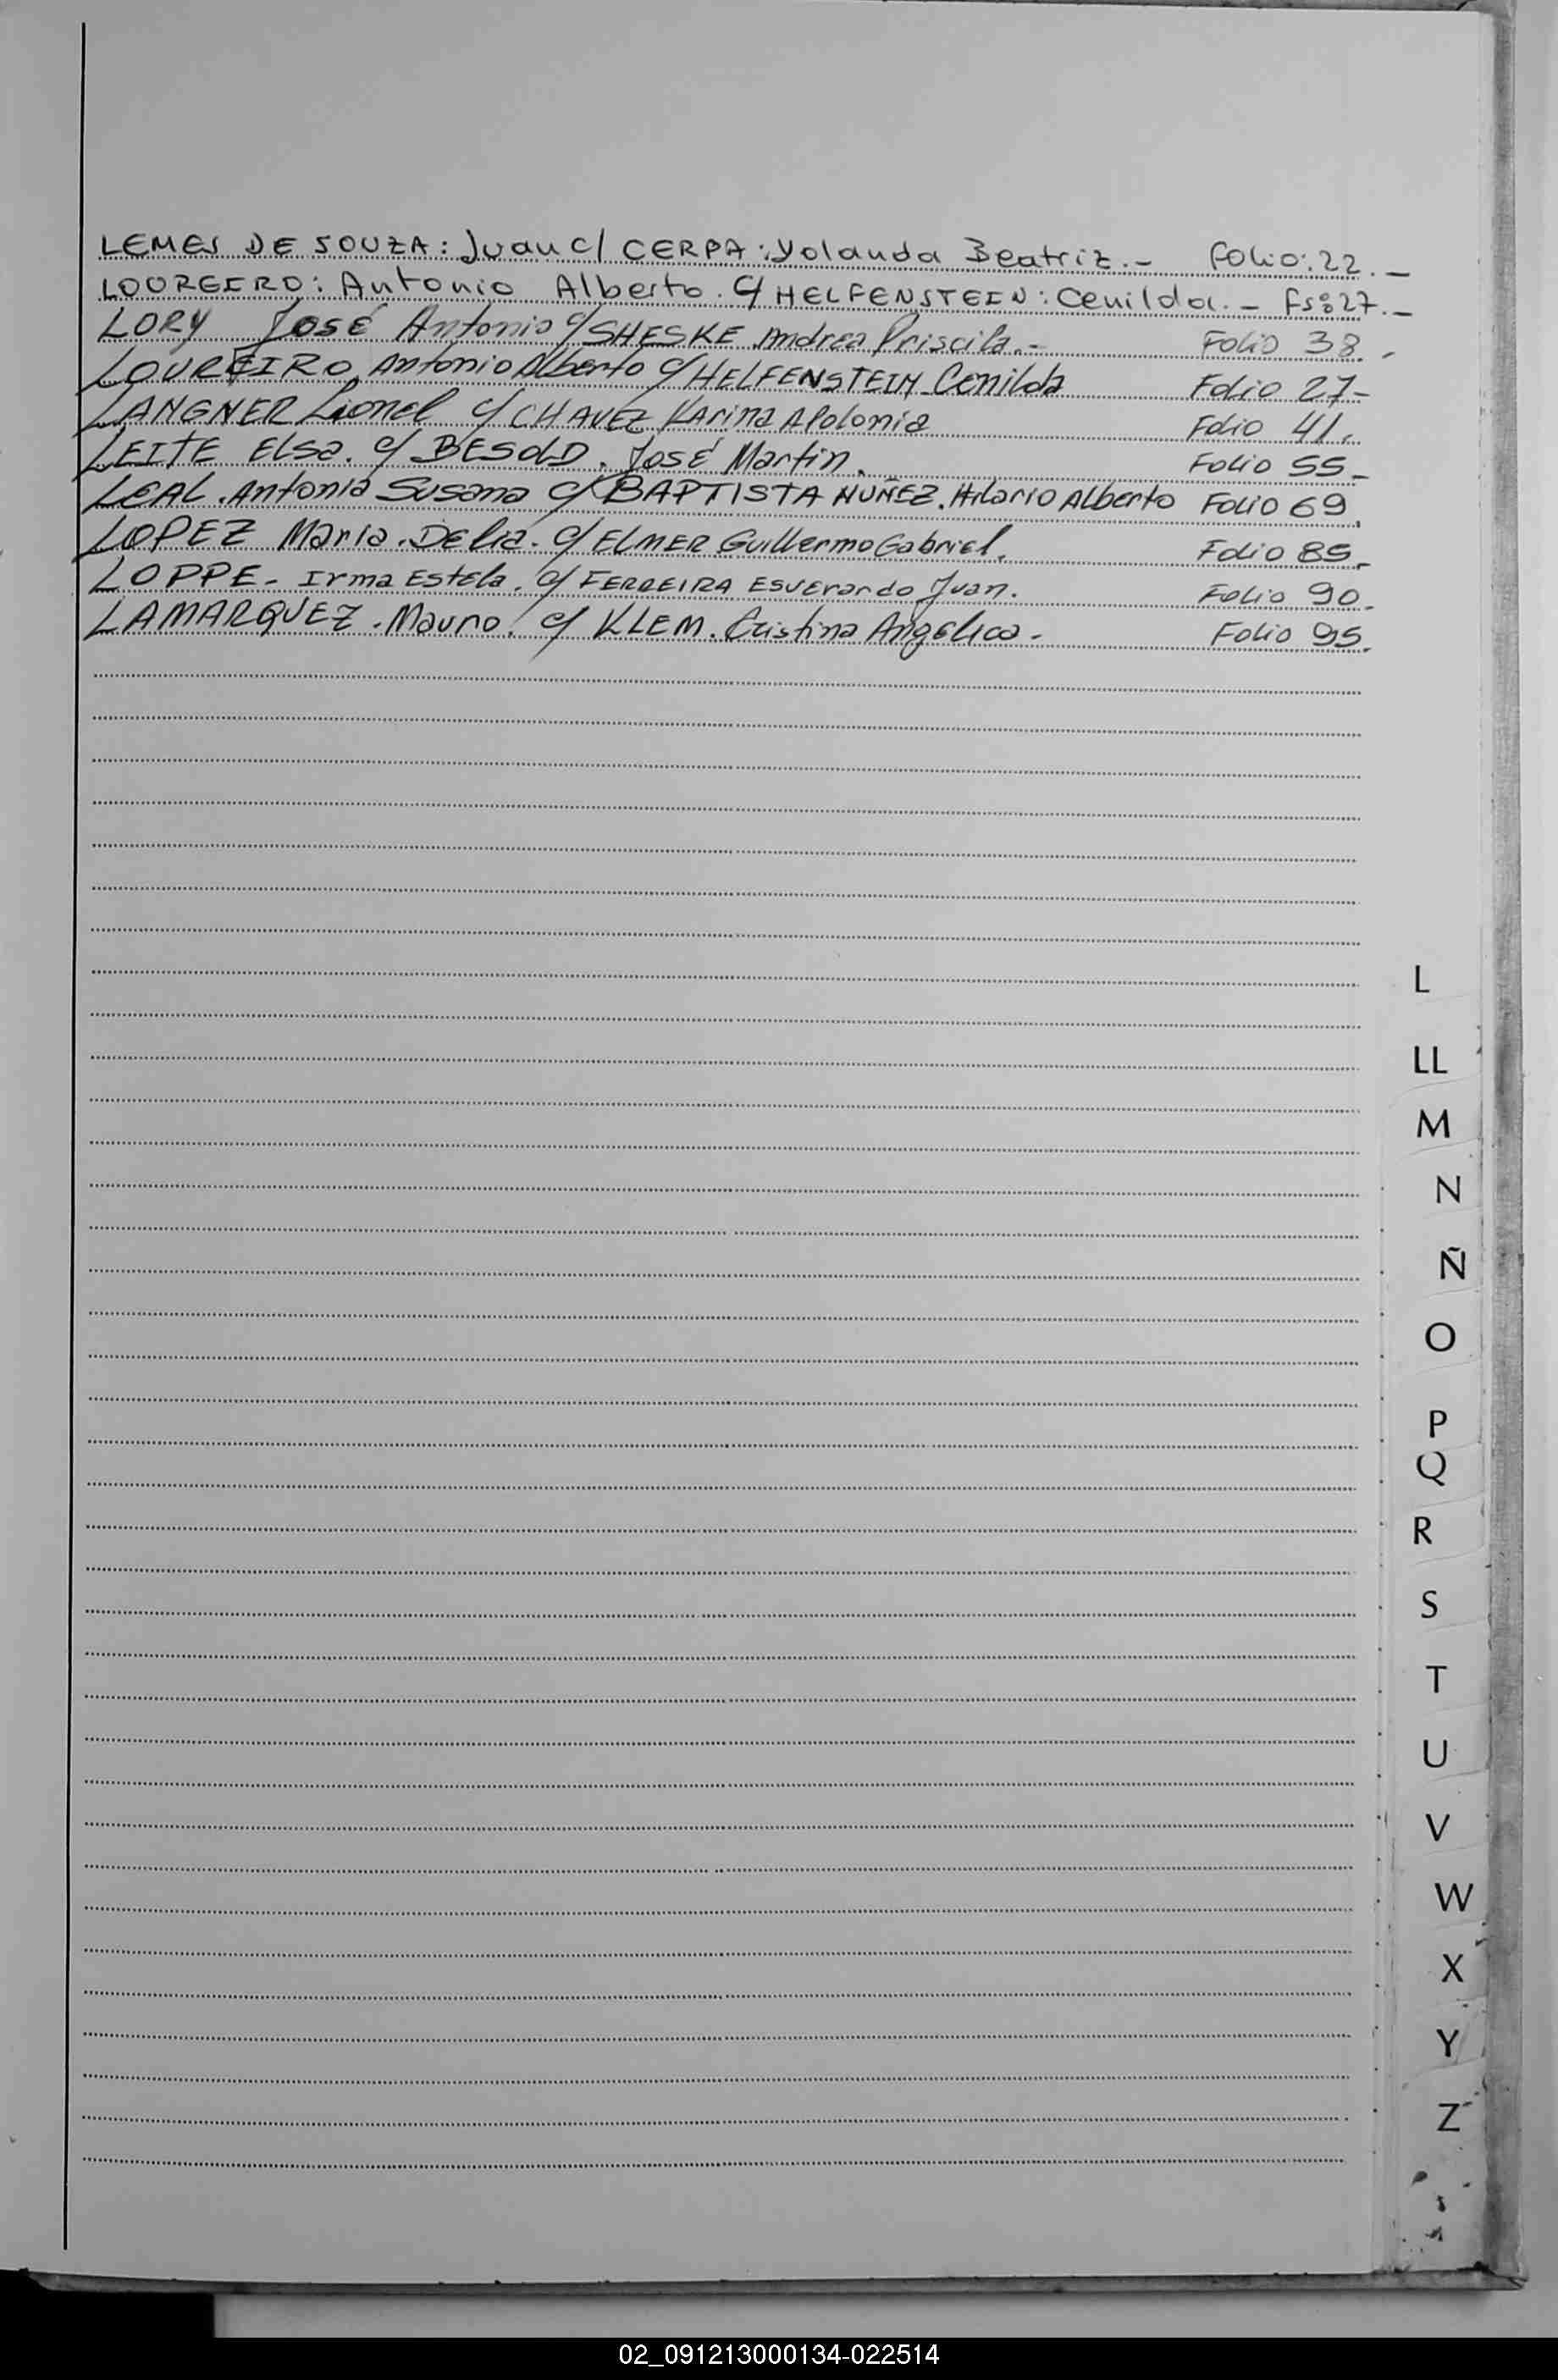 LEMES DE SOUZA: Juan c/ CERPA: Yolanda Beatriz.- Folio: 22.-
LOUREIRO: Antonio Alberto. c/ HELFENSTEIN: Cenilda.- fs: 27.-
LORY José Antonio c/ SHESKE Andrea Priscila.- Folio 38.
LOUREIRO Antonio Alberto c/ HELFENSTEIN Cenilda Folio 27-
LANGNER Lionel c/ CHAVEZ Karina Apolonia Folio 41.
LEITE Elsa. c/ BESOLD. José Martin. Folio 55-
LEAL. Antonia Susana c/ BAPTISTA NUÑEZ. Hilario Alberto Folio 69.
LOPEZ Maria. Delia. c/ ELMER Guillermo Gabriel. Folio 85.
LOPPE- Irma Estela. c/ FERREIRA Esverardo Juan. Folio 90.
LAMARQUEZ. Mauro. c/ KLEM. Cristina Angélica- Folio 95.
L
LL
M
N
Ñ
O
P
Q
R
S
T
U
V
W
X
Y
Z
02_091213000134-022514